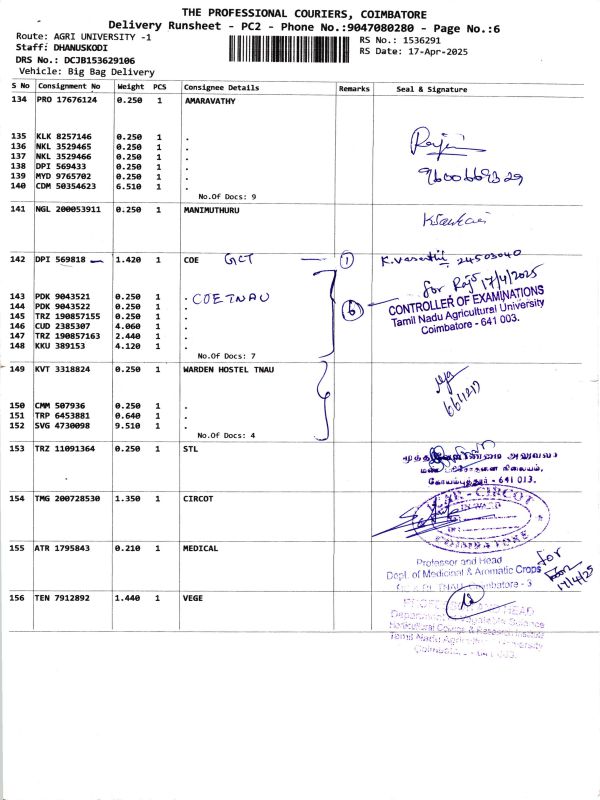 THE PROFESSIONAL COURIERS, COIMBATORE
Delivery Runsheet - PC2 - Phone No.:9047080280 - Page No.:6
Route: AGRI UNIVERSITY -1
RS No.: 1536291
Staff: DHANUSKODI
RS Date: 17-Apr-2025
DRS No.: DCJB153629106
Vehicle: Big Bag Delivery
S No Consignment No Weight PCS Consignee Details Remarks Seal & Signature
134 PRO 17676124 0.250 1 AMARAVATHY
135 KLK 8257146 0.250 1 .
136 NKL 3529465 0.250 1 .
137 NKL 3529466 0.250 1 .
138 DPI 569433 0.250 1 .
139 MYD 9765702 0.250 1 .
140 CDM 50354623 6.510 1 .
No.Of Docs: 9
9600669329
141 NGL 200053911 0.250 1 MANIMUTHURU
142 DPI 569818 1.420 1 COE GCT 1 K.Vasanthi 24503040
for 17/4/2025
143 PDK 9043521 0.250 1 . COETNAU 6
144 PDK 9043522 0.250 1 .
145 TRZ 190857155 0.250 1 .
146 CUD 2385307 4.060 1 .
147 TRZ 190857163 2.440 1 .
148 KKU 389153 4.120 1 .
No.Of Docs: 7
CONTROLLER OF EXAMINATIONS
Tamil Nadu Agricultural University
Coimbatore - 641 003.
149 KVT 3318824 0.250 1 WARDEN HOSTEL TNAU
150 CMM 507936 0.250 1 .
151 TRP 6453881 0.640 1 .
152 SVG 4730098 9.510 1 .
No.Of Docs: 4
6611217
153 TRZ 11091364 0.250 1 STL
கோயம்புத்தூர் - 641 013.
154 TMG 200728530 1.350 1 CIRCOT
CIRCOT
COIMBATORE
155 ATR 1795843 0.210 1 MEDICAL
Professor and Head
Dept. of Medicinal & Aromatic Crops
TNAU, Coimbatore - 3
for
17/4/25
156 TEN 7912892 1.440 1 VEGE
PROFESSOR AND HEAD
Department of Vegetable Science
Horticultural College & Research Institute
Tamil Nadu Agricultural University